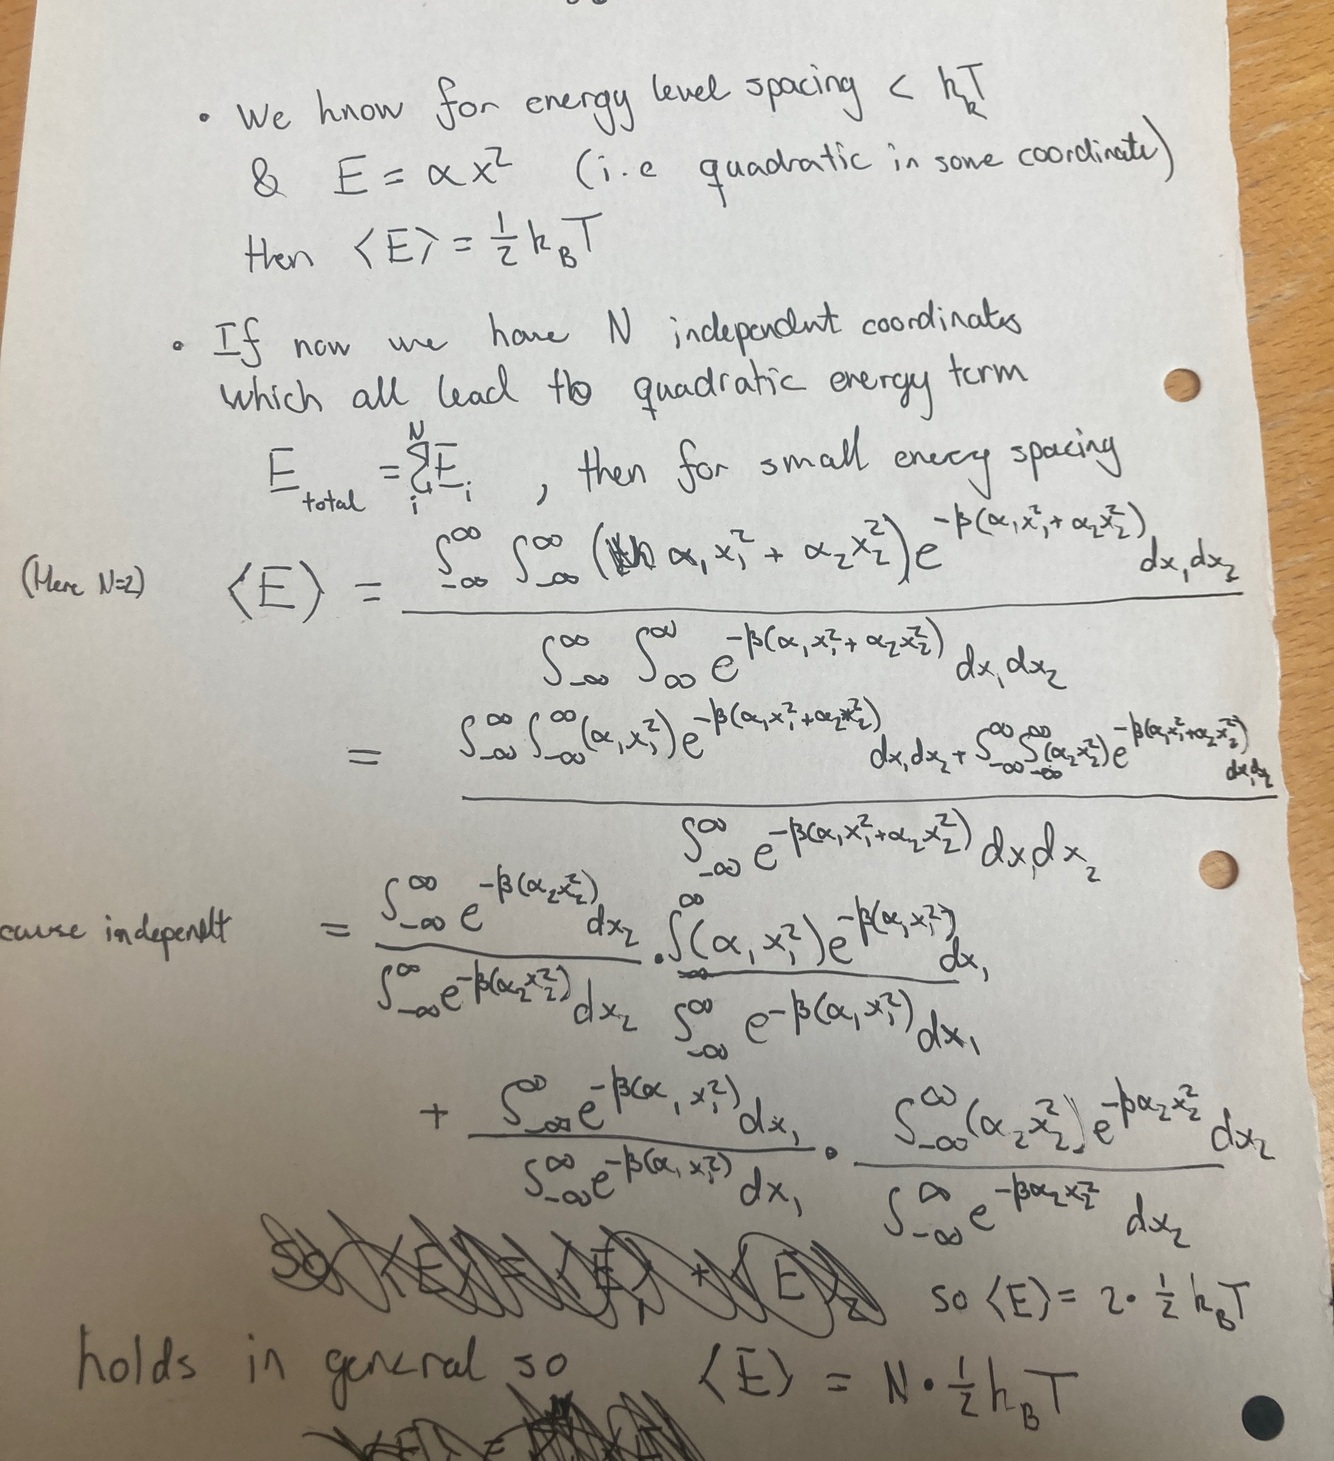 • We know for energy level spacing < k_BT
& E = αx² (i.e quadratic in some coordinate)
then ⟨E⟩ = 1/2 k_BT
• If now we have N independent coordinates
which all lead to quadratic energy term
E_total = Σ_i^N E_i , then for small energy spacing
(Here N=2) ⟨E⟩ = ∫_{-∞}^{∞} ∫_{-∞}^{∞} (α₁x₁² + α₂x₂²) e^{-β(α₁x₁² + α₂x₂²)} dx₁dx₂
∫_{-∞}^{∞} ∫_{∞}^{∞} e^{-β(α₁x₁² + α₂x₂²)} dx₁dx₂
= ∫_{-∞}^{∞} ∫_{-∞}^{∞} (α₁x₁²) e^{-β(α₁x₁²+α₂x₂²)} dx₁dx₂ + ∫_{-∞}^{∞} ∫_{-∞}^{∞} (α₂x₂²) e^{-β(α₁x₁²+α₂x₂²)} dx₁dx₂
∫_{-∞}^{∞} e^{-β(α₁x₁²+α₂x₂²)} dx₁dx₂
cause = ∫_{-∞}^{∞} e^{-β(α₂x₂²)} dx₂ · ∫^{∞} (α₁x₁²) e^{-β(α₁x₁²)} dx₁
∫_{-∞}^{∞} e^{-β(α₂x₂²)} dx₂ ∫_{-∞}^{∞} e^{-β(α₁x₁²)} dx₁
+ ∫_{-∞}^{∞} e^{-β(α₁x₁²)} dx₁ · ∫_{-∞}^{∞} (α₂x₂²) e^{-βα₂x₂²} dx₂
∫_{-∞}^{∞} e^{-β(α₁x₁²)} dx₁ ∫_{-∞}^{∞} e^{-βα₂x₂²} dx₂
so ⟨E⟩ = 2 · 1/2 k_BT
holds in general so ⟨E⟩ = N · 1/2 k_BT